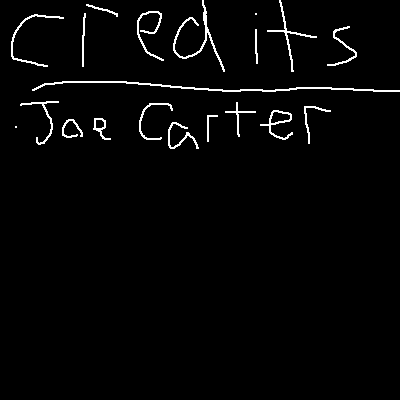 credits
Joe Carter